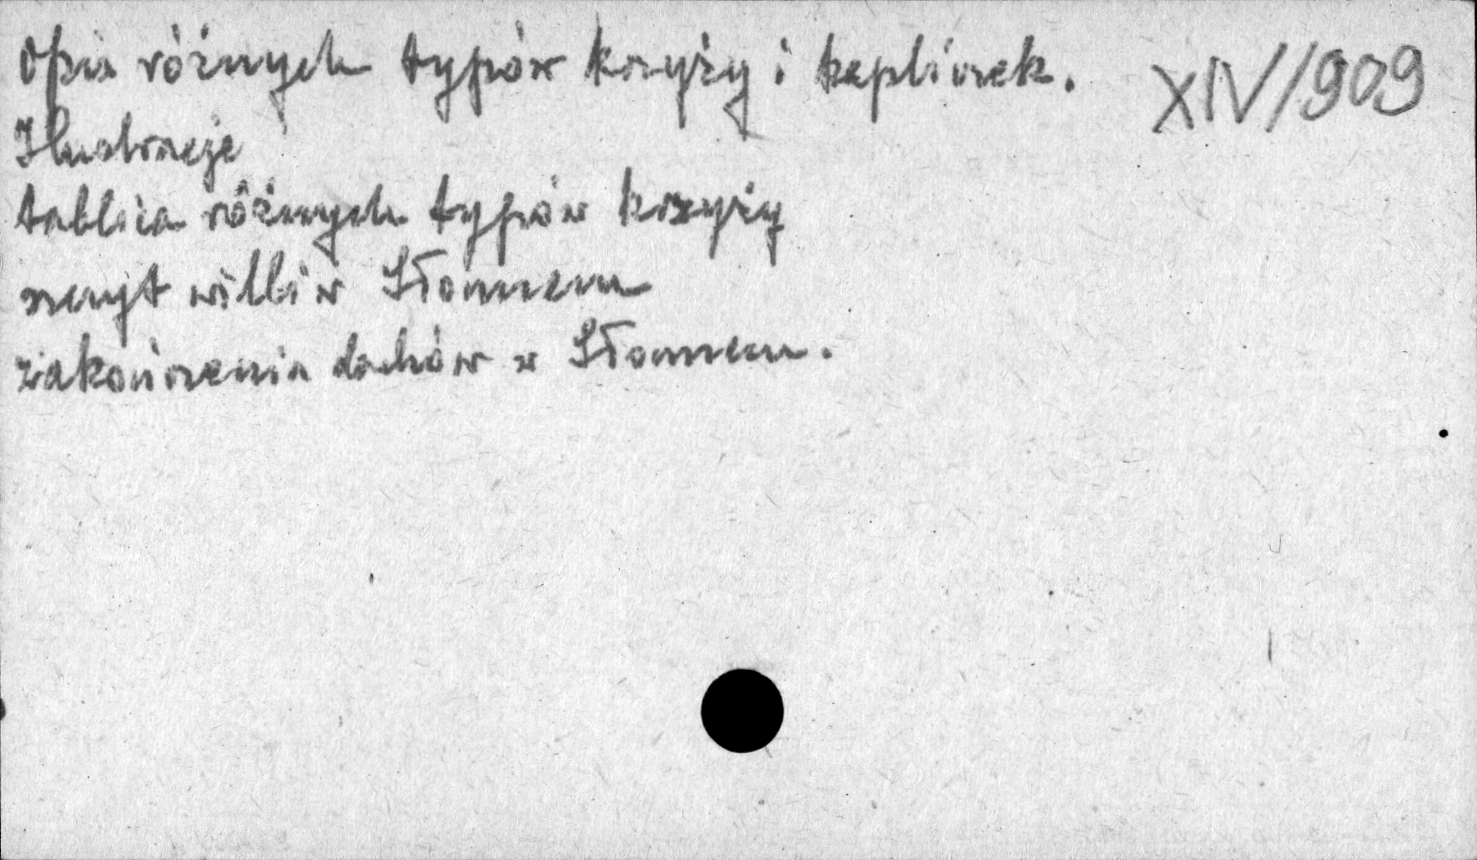 Opis różnych typów krzyży i kapliczek. XIV/909
Ilustracje
tablica różnych typów krzyży
szczyt willi w Słonnem
zakończenia dachów w Słonnem.